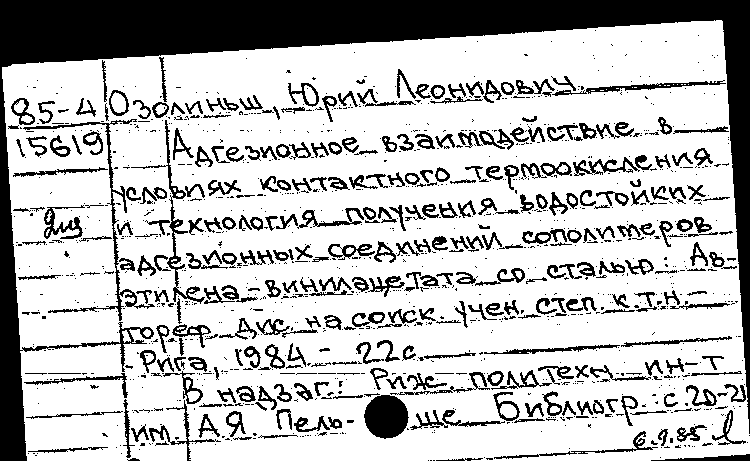 85-4 Озолиньш, Юрий Леонидович.
15619 Адгезионное взаимодействие в
условиях контактного термоокисления
Дис и технология получения водостойких
адгезионных соединений сополимеров
этилена-винилацетата со сталью: Ав-
тореф. дис. на соиск. учен. степ. к.т.н. –
Рига, 1984 – 22с.
В надзаг.: Риж. политехн. ин-т
им. А.Я. Пель- ше Библиогр.: с.20-21
6.9.85